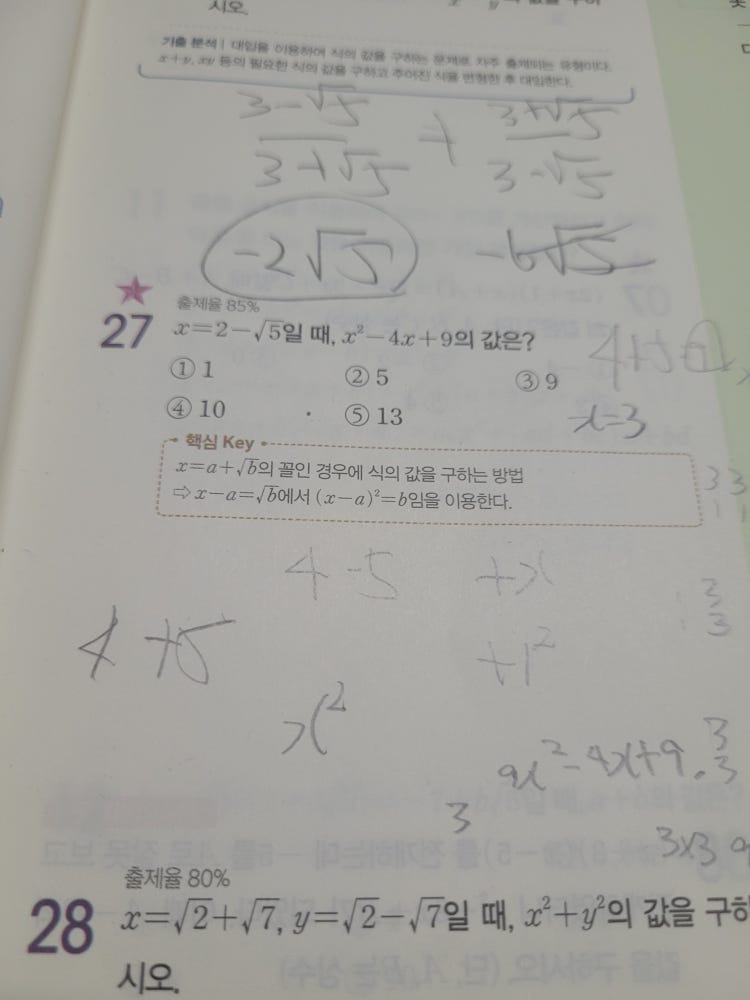 시오.
기출 분석 | 대입을 이용하여 식의 값을 구하는 문제로 자주 출제되는 유형이다.
x+y, xy 등의 필요한 식의 값을 구하고 주어진 식을 변형한 후 대입한다.
3-√5 3+√5
+
3+√5 3-√5
-2√5 -6√5
출제율 85%
27 x=2-√5일 때, x²-4x+9의 값은?
① 1 ② 5 ③ 9
④ 10 ⑤ 13
x=3
핵심 Key
x=a+√b의 꼴인 경우에 식의 값을 구하는 방법
⇨ x-a=√b에서 (x-a)²=b임을 이용한다.
4-5 +x
4+5 +1²
x²
9x²-4x+9.
3
3×3 9
출제율 80%
28 x=√2+√7, y=√2-√7일 때, x²+y²의 값을 구하
시오.